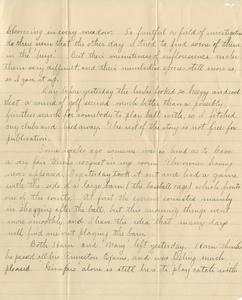 blooming in every meadow. So fruitful a field of investigation
do these now that the other day I tried to find some of them
in the "buys. But their minuteness of inflorescence makes
them very difficult and their numberless species still more so,
so I gave it up.
Day before yesterday the links looked so soggy and wet
that a round of golf seemed much better than a possibly
fruitless search for somebody to play ball with, so I fetched
my clubs and hied away. The rest of the story is not free for
publication.
Some weeks ago someone was so and as to leave
a very fair tennis racquet in my room. The owner having
never appeared, I yesterday took it out and had a game
with the side of a large barn (the baseball cage) which fronts
one of the courts. At first the exercise consisted mainly
in shagging after the ball, but this morning things went
more smoothly, and I have the idea that many days
will find me out playing the barn.
Both Ham and "Mary" left yesterday. Ham thinks
he passed all his Princeton exams, and was feeling much
pleased. alone is still here to play catch with